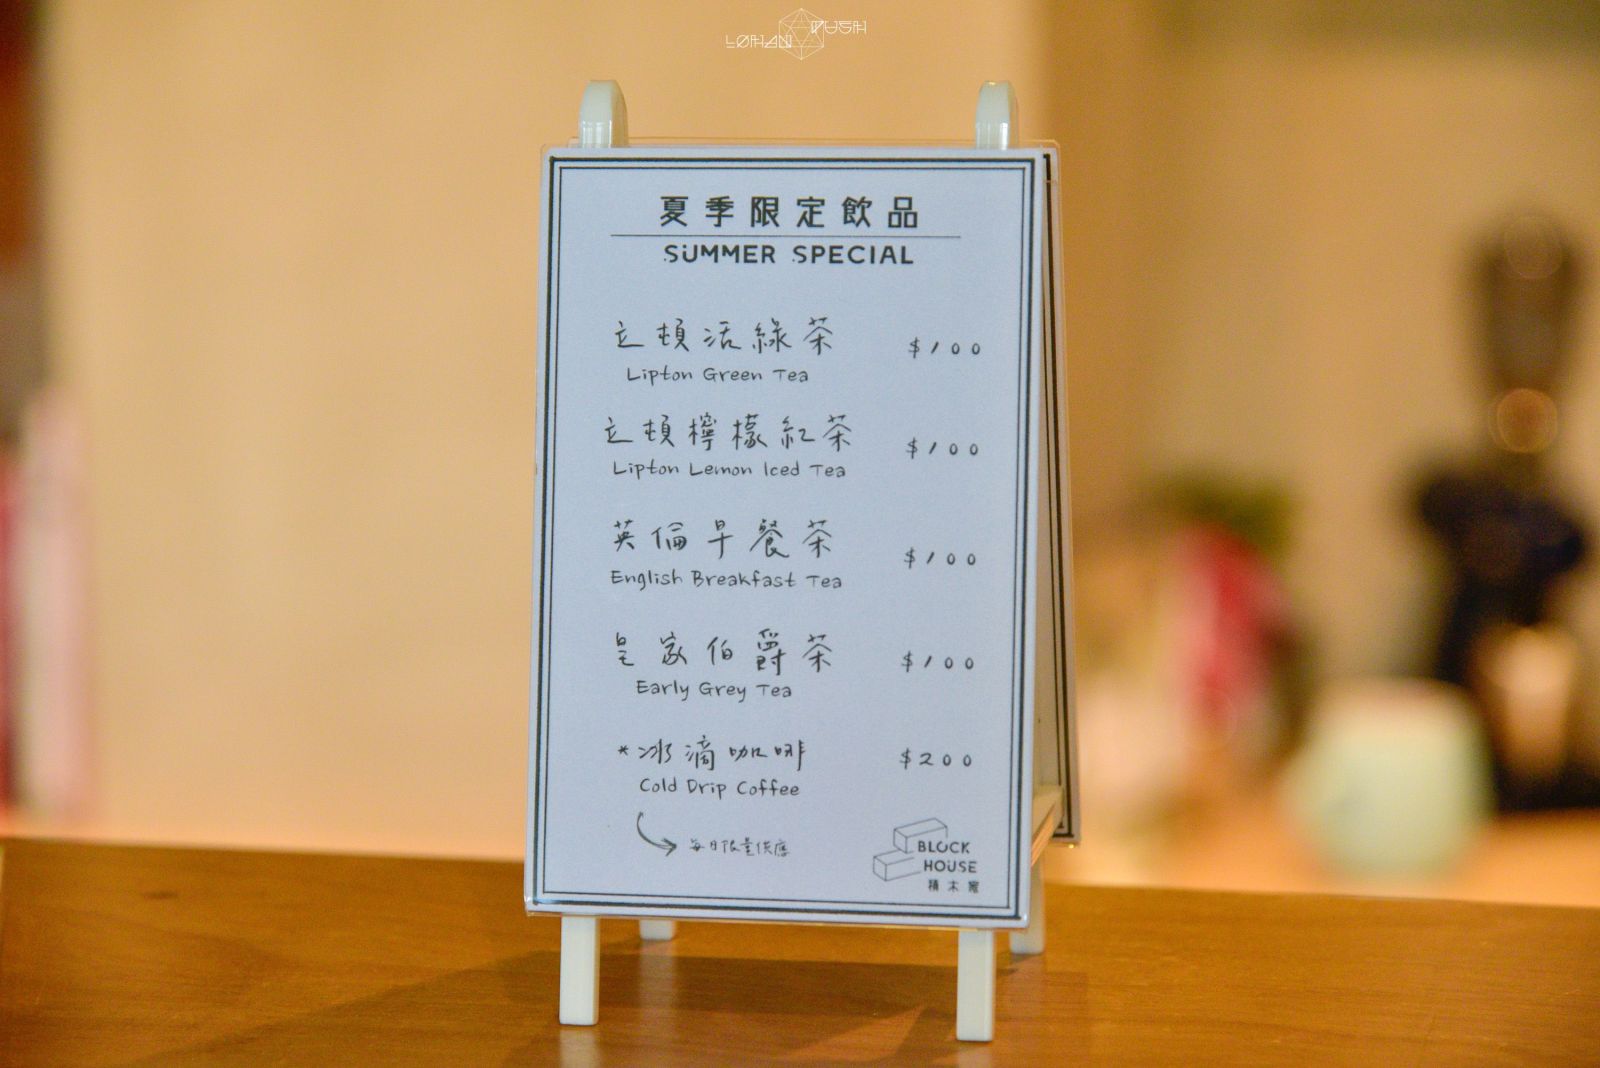 LOHAN PUSH
夏季限定飲品
SUMMER SPECIAL
立頓活綠茶 $100
Lipton Green Tea
立頓檸檬紅茶 $100
Lipton Lemon Iced Tea
英倫早餐茶 $100
English Breakfast Tea
皇家伯爵茶 $100
Early Grey Tea
*冰滴咖啡 $200
Cold Drip Coffee
每日限量供應
BLOCK
HOUSE
積木屋